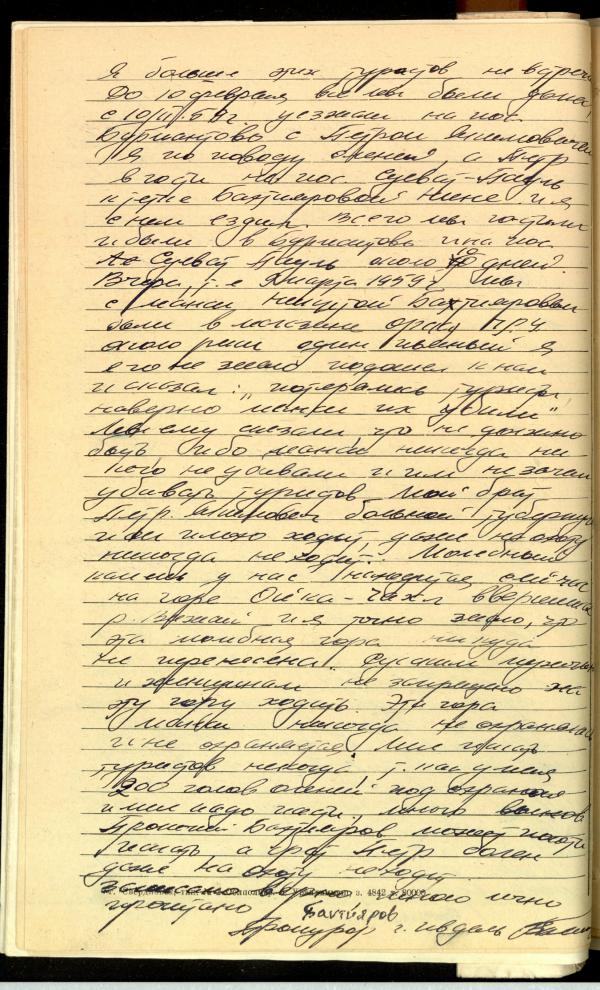 Я больше этих туристов не встреч
До 10 февраля все мы были дома,
с 10/II.59г. уезжали на пос.
Бурмантово с Петром Якимовичем
Я по поводу оленей, а Петр
в гости на пос. Суеват-Пауль
к тетке Бахтияровой Нине и я
с ним ездил. Всего мы гостили
и были в Бурмантово и на пос.
Суеват Пауль около 10 дней.
Вчера, т.е 9 марта 1959г мы
с манси Никитой Бахтияровым
были в магазине при
один пьяный я
его не знаю подошел к нам
и сказал: "потерялись туристы
наверно манси их убили"
Мы ему сказали что не должно
быть ибо манси никогда ни
кого не убивали и им незачем
убивать туристов. Мой брат
Петр Якимович больной туберкул
и он плохо ходит, даже на охоту
никогда не ходит. Молебный
камень у нас находится сейчас
на горе Ойка-Чахл в вершине
р. Вижай и я точно знаю, что
эта молебная гора никуда
не перенесена. Русским мужчин
и женщинам не запрещено на
эту гору ходить. Эта гора
манси никогда не охранялась
и не охраняется. Мне искать
туристов некогда, т. как у меня
1200 голов оленей под охраной
и мне надо пасти, много волков
Прокопий Бахтияров может пойти
искать а брат Петр болен
даже на охоту не ходит.
з. 4842
мною лично
прочитано Бахтияров
Прокурор г. Ивдель